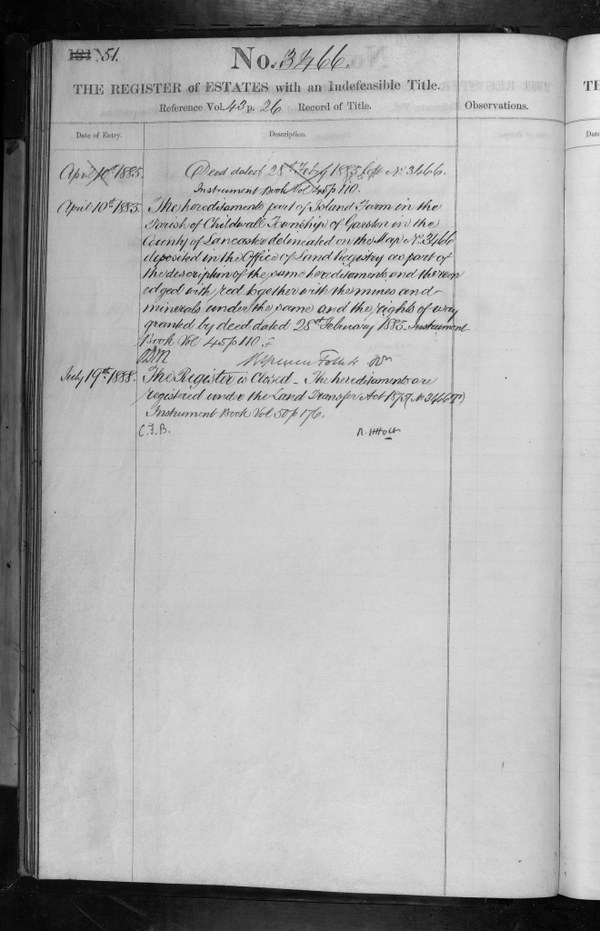 51.
No. 3466.
THE REGISTER of ESTATES with an Indefeasible Title.
Reference Vol. 43 p. 26 Record of Title.
Observations.
Date of Entry.
Description.
April 10th 1885.
Deed dated 28th Feby 1885 No 3466.
Instrument Book Vol 45 p 110.
April 10th 1885.
The hereditaments part of Island Farm in the
Parish of Childwall Township of Garston in the
County of Lancaster delineated on the Map No 3466
deposited in the Office of Land Registry as part of
the description of the same hereditaments and thereon
edged with red together with the mines and
minerals under the same and the rights of way
granted by deed dated 28th February 1885 Instrument
Book Vol 45 p 110.
July 19th 1888.
The Register is Closed – The hereditaments are
registered under the Land Transfer Act 1875 (No 3466
Instrument Book Vol 50 p 176.
C.F.B.
R. H Holt
TH
Dat